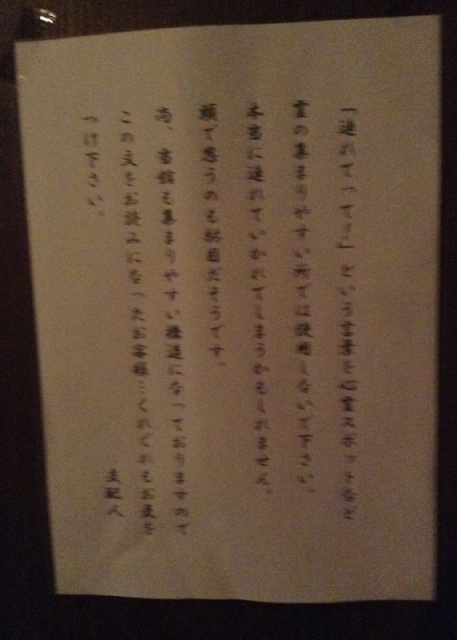 「連れてって」という言葉を心霊スポットなど
霊の集まりやすい所では使用しないで下さい。
本当に連れていかれてしまうかもしれません。
頭で思うのも駄目だそうです。
尚、当館も集まりやすい構造になっておりますので
この文をお読みになったお客様はくれぐれもお気を
つけ下さい。
支配人